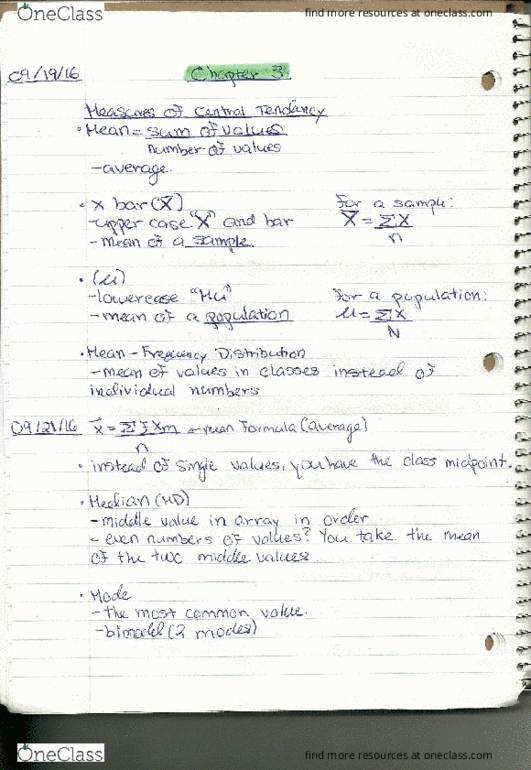 OneClass
find more resources at oneclass.com
09/19/16 Chapter 3
Measures of Central Tendancy
• Mean = sum of values
number of values
- average.
• x bar (X̄) For a sample:
- upper case "X" and bar X̄ = ΣX
- mean of a sample. n
• (μ)
- lowercase "Mu" For a population:
- mean of a population μ = ΣX
N
• Mean - Frequency Distribution
- mean of values in classes instead of
individual numbers
09/21/16 x̄ = Σ f Xm ← mean formula (average)
n
• instead of single values, you have the class midpoint.
• Median (MD)
- middle value in array in order
- even numbers of values? You take the mean
of the two middle values.
• Mode
- the most common value.
- bimodel (2 modes)
OneClass
find more resources at oneclass.com